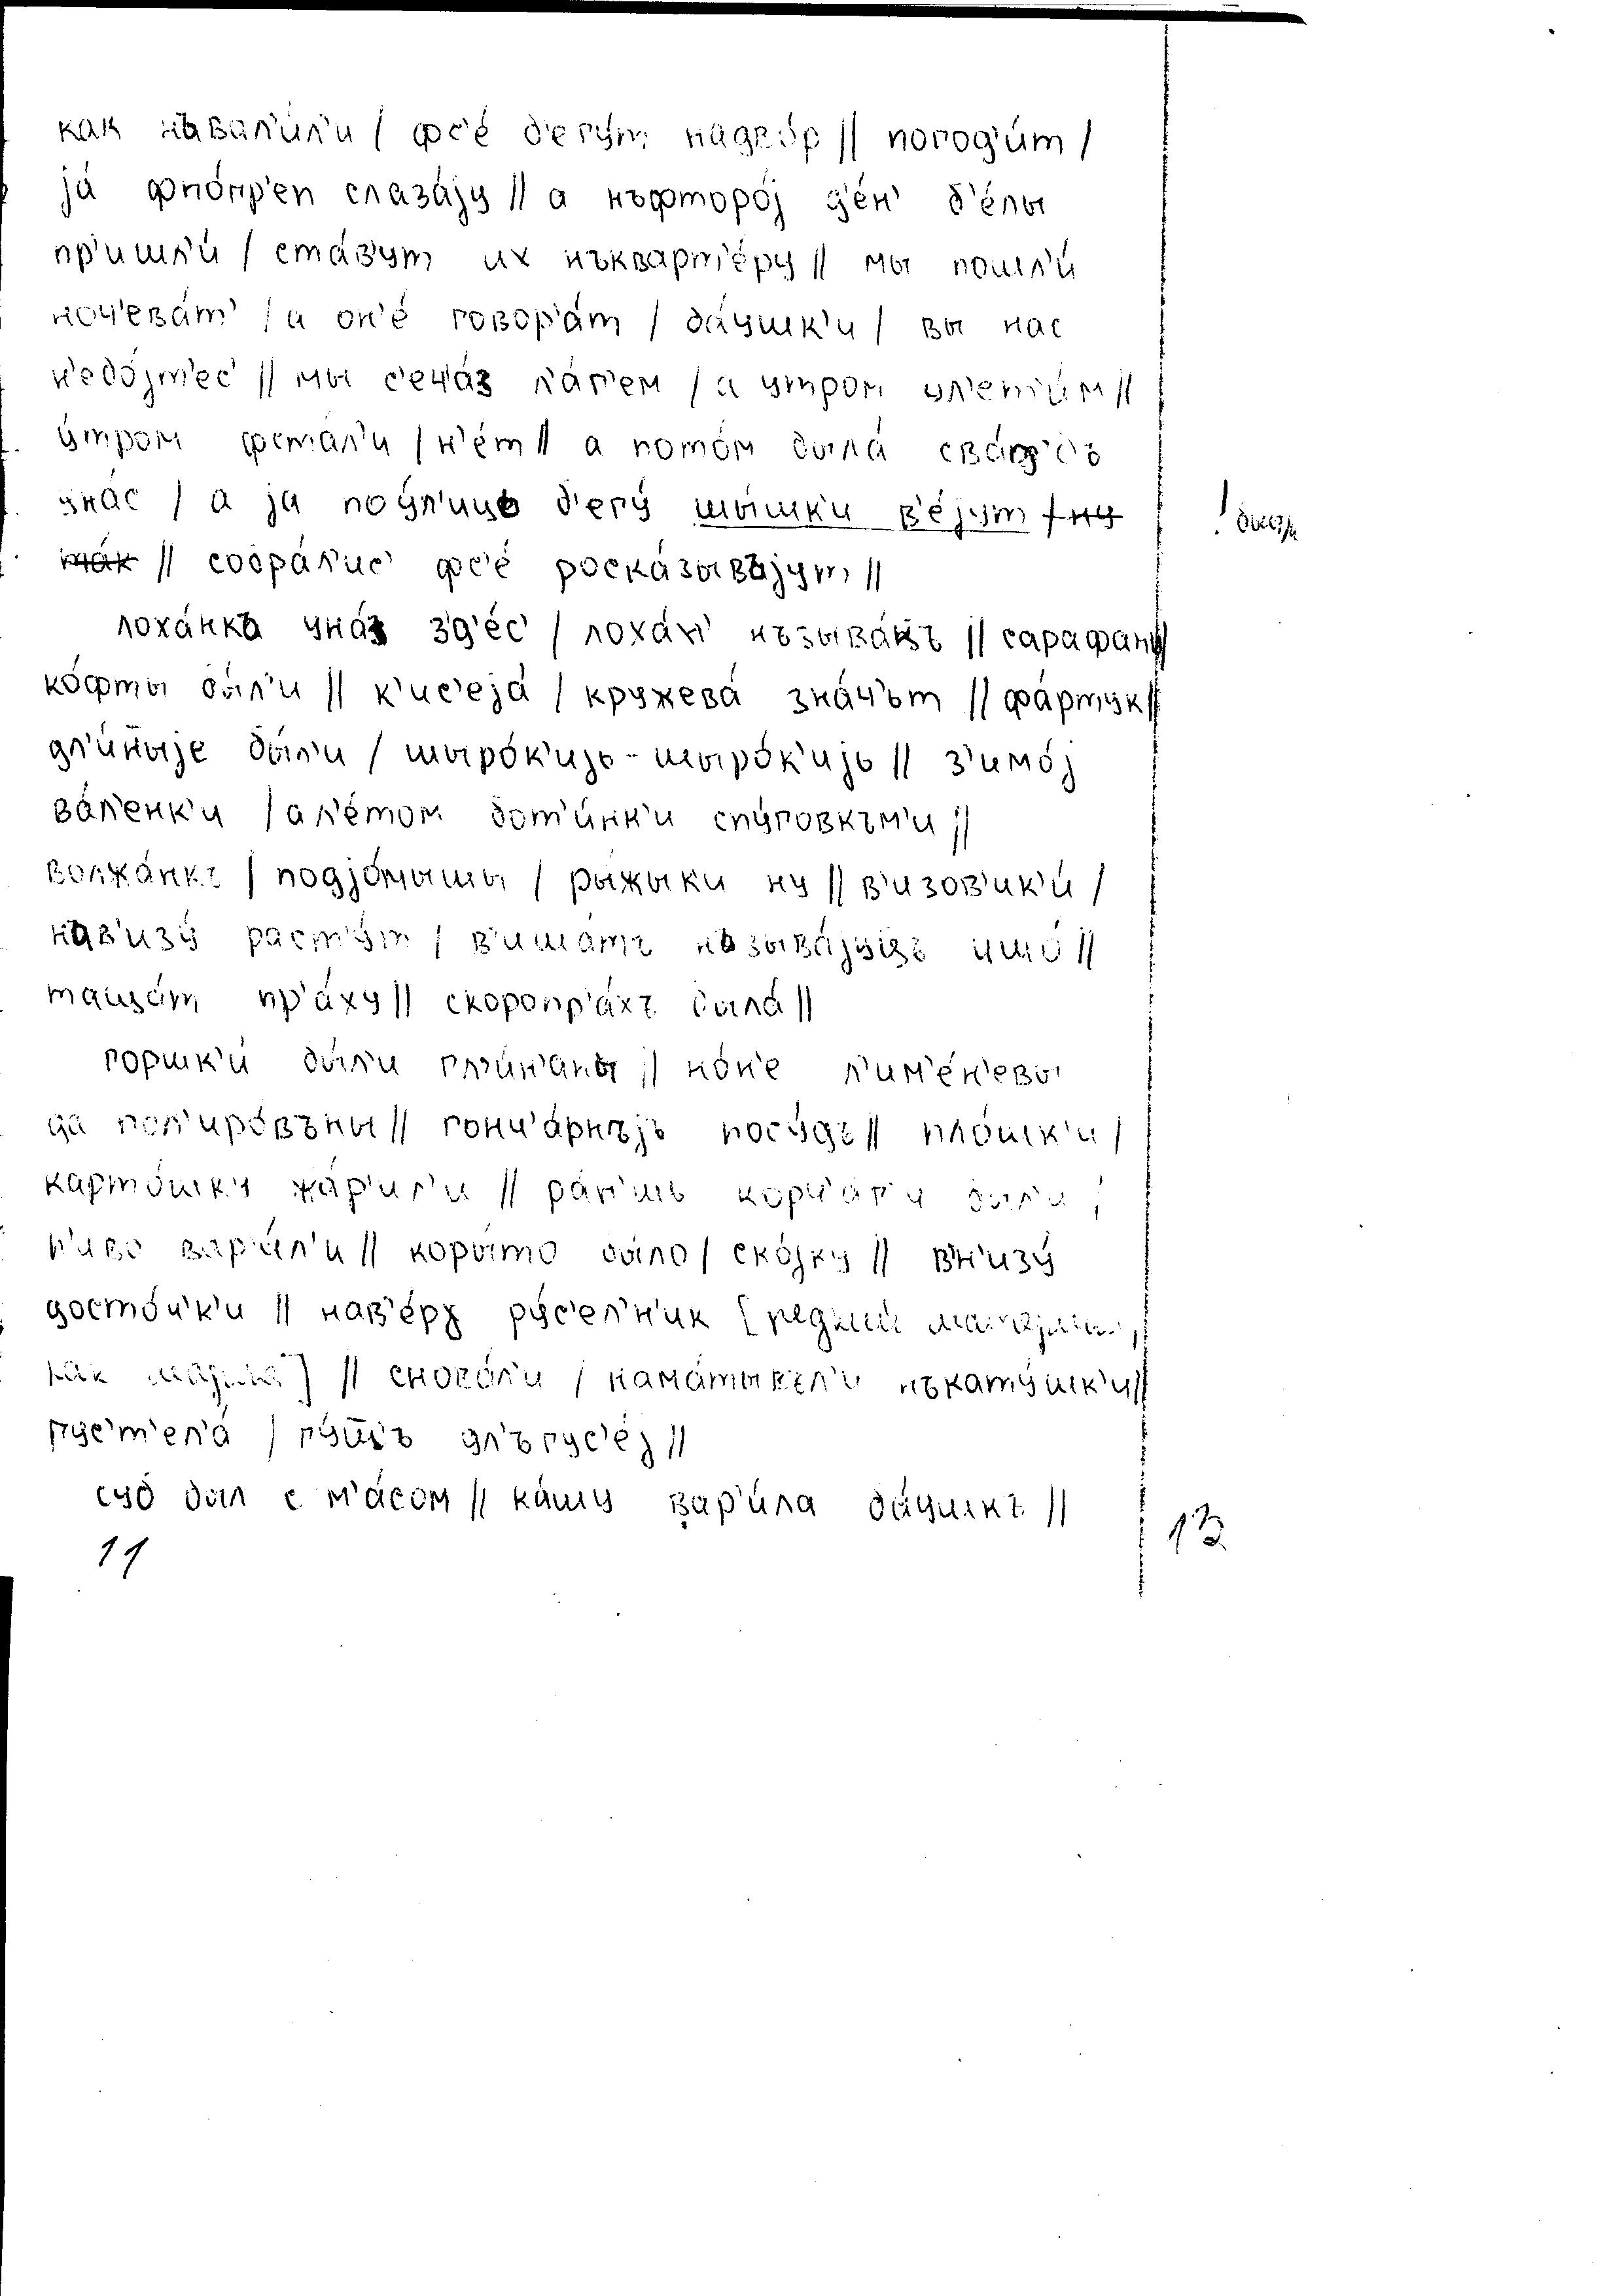 как нъвал'и́л'и / фс'е́ б'егу́т надво́р // погод'и́т /
jа́ фпо́гр'еп слаза́jу // а нъфторо́j д'е́н' б'е́лы
пр'ишл'и́ / ста́в'ут их нъкварт'е́ру // мы пошл'и́
ноч'ева́т' / а он'е́ говор'а́т / ба́ушк'и / вы нас
н'ебо́jт'ес' // мы с'еч'а́з л'а́г'ем / а утром ул'ет'и́м //
у́тром фстал'и / н'е́т // а пото́м была́ сва́д'бъ
уна́с / а jа поу́л'ицъ б'егу́ шы́шк'и в'е́jут / ну
так // собра́л'ис' фс'е́ роска́зывъjут //
лоха́нкъ уна́з з'д'е́с' / лоха́н' нъзыва́къ // сарафаны
ко́фты бы́л'и // к'ис'еjа́ / кружева́ зна́ч'ьт // фа́ртук //
дл'и́н̄ыjе бы́л'и / шыро́к'иjь - шыро́к'иjь // з'имо́j
ва́л'енк'и / ал'е́том бот'и́нк'и спу́говкъм'и //
волжа́нкъ / подjо́мышы / ры́жыки ну // в'изов'ик'и́ /
нав'изу́ раст'у́т / в'иша́тъ нъзыва́jуцъ ишо́ //
таща́т пр'а́ху // скоропр'а́хъ была́ //
горшк'и́ бы́л'и гл'и́н'аны // но́н'е л'им'е́н'евы
да пол'иро́въны // гонч'а́рнъjъ посу́дъ // пло́шк'и /
карто́шку жа́р'ил'и // ра́н'шь корч'а́г'и был'и /
п'иво вар'и́л'и // коры́то было / ско́jку // вн'изу́
досто́ч'к'и // нав'е́рх ру́с'ел'н'ик [редкий
как марля] // снова́л'и / нама́тывъл'и нъкату́шк'и //
гус'т'ел'а́ / гу́ш̄'ъ дл'ъгус'е́j //
суб был с м'а́сом // ка́шу вар'и́ла ба́ушкъ //
11
13